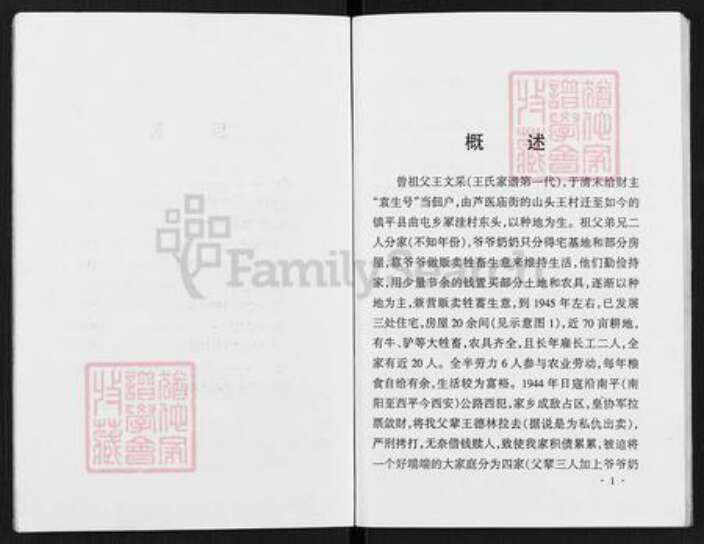 概 述
曾祖父王文采(王氏家谱第一代),于清末给财主
“袁生号”当佃户,由芦医庙街的山头王村迁至如今的
镇平县曲屯乡冢洼村东头,以种地为生。祖父弟兄二
人分家(不知年份),爷爷奶奶只分得宅基地和部分房
屋,靠爷爷做贩卖牲畜生意来维持生活,他们勤俭持
家,用少量节余的钱置买部分土地和农具,逐渐以种
地为主,兼营贩卖牲畜生意,到 1945 年左右,已发展
三处住宅,房屋 20 余间(见示意图 1),近 70 亩耕地,
有牛、驴等大牲畜,农具齐全,且长年雇长工二人,全
家有近 20 人。全半劳力 6 人参与农业劳动,每年粮
食自给有余,生活较为富裕。1944 年日寇沿南平(南
阳至西平今西安)公路西犯,家乡成敌占区,皇协军拉
票敛财,将我父辈王德林拉去(据说是为私仇出卖),
严刑拷打,无奈借钱赎人,致使我家积债累累,被迫将
一个好端端的大家庭分为四家(父辈三人加上爷爷奶
· 1 ·
FamilySearch